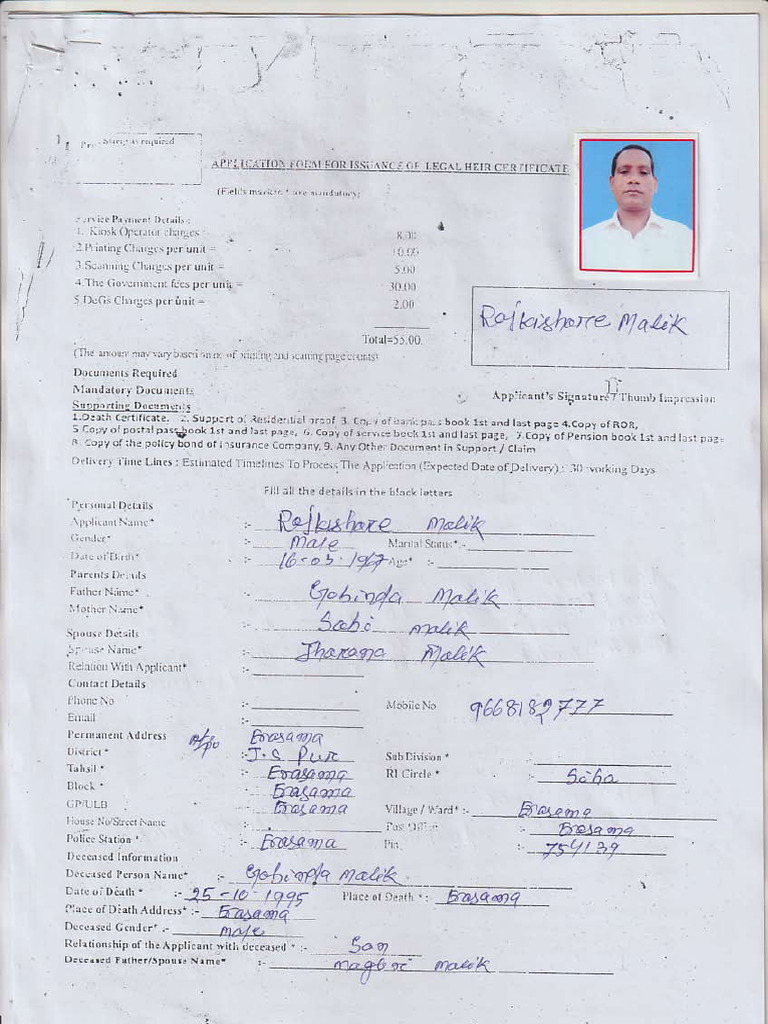 Stamp as required
APPLICATION FORM FOR ISSUANCE OF LEGAL HEIR CERTIFICATE
(Fields marked * are mandatory)
Service Payment Details :
1. Kiosk Operator charges 8.00
2.Printing Charges per unit = 10.00
3.Scanning Charges per unit = 5.00
4.The Government fees per unit = 30.00
5.DeGs Charges per unit = 2.00
Total=55.00.
(The amount may vary based on no of printing and scaning page counts)
Rajkishore Malik
Applicant's Signature / Thumb Impression
Documents Required
Mandatory Documents
Supporting Documents
1.Death Certificate. 2. Support of Residential proof 3. Copy of bank pass book 1st and last page 4.Copy of ROR,
5 Copy of postal pass book 1st and last page, 6. Copy of service book 1st and last page, 7. Copy of Pension book 1st and last page
8. Copy of the policy bond of Insurance Company, 9. Any Other Document in Support / Claim
Delivery Time Lines : Estimated Timelines To Process The Application (Expected Date of Delivery) : 30 working Days
Fill all the details in the block letters
Personal Details
Applicant Name* :- Rajkishore Malik
Gender* :- Male Marital Status* :-
Date of Birth* :- 16-03- Age* :-
Parents Details
Father Name* :- Gobinda Malik
Mother Name* :- Sabi malik
Spouse Details
Spouse Name* :- Jharana Malik
Relation With Applicant* :-
Contact Details
Phone No :- Mobile No 9668182777
Email :-
Permanent Address At/po Erasama
District * :- J.S Pur Sub Division * :-
Tahsil * :- Erasama RI Circle * :- Soba
Block * :- Erasama
GP/ULB :- Erasama Village / Ward* :- Erasama
House No/Street Name :- Post Office :- Erasama
Police Station * :- Erasama Pin :- 754139
Deceased Information
Deceased Person Name* :- Gobinda Malik
Date of Death * :- 25-10-1995 Place of Death * : Erasama
Place of Death Address* :- Erasama
Deceased Gender* :- Male
Relationship of the Applicant with deceased * :- Son
Deceased Father/Spouse Name* :- Maguni Malik